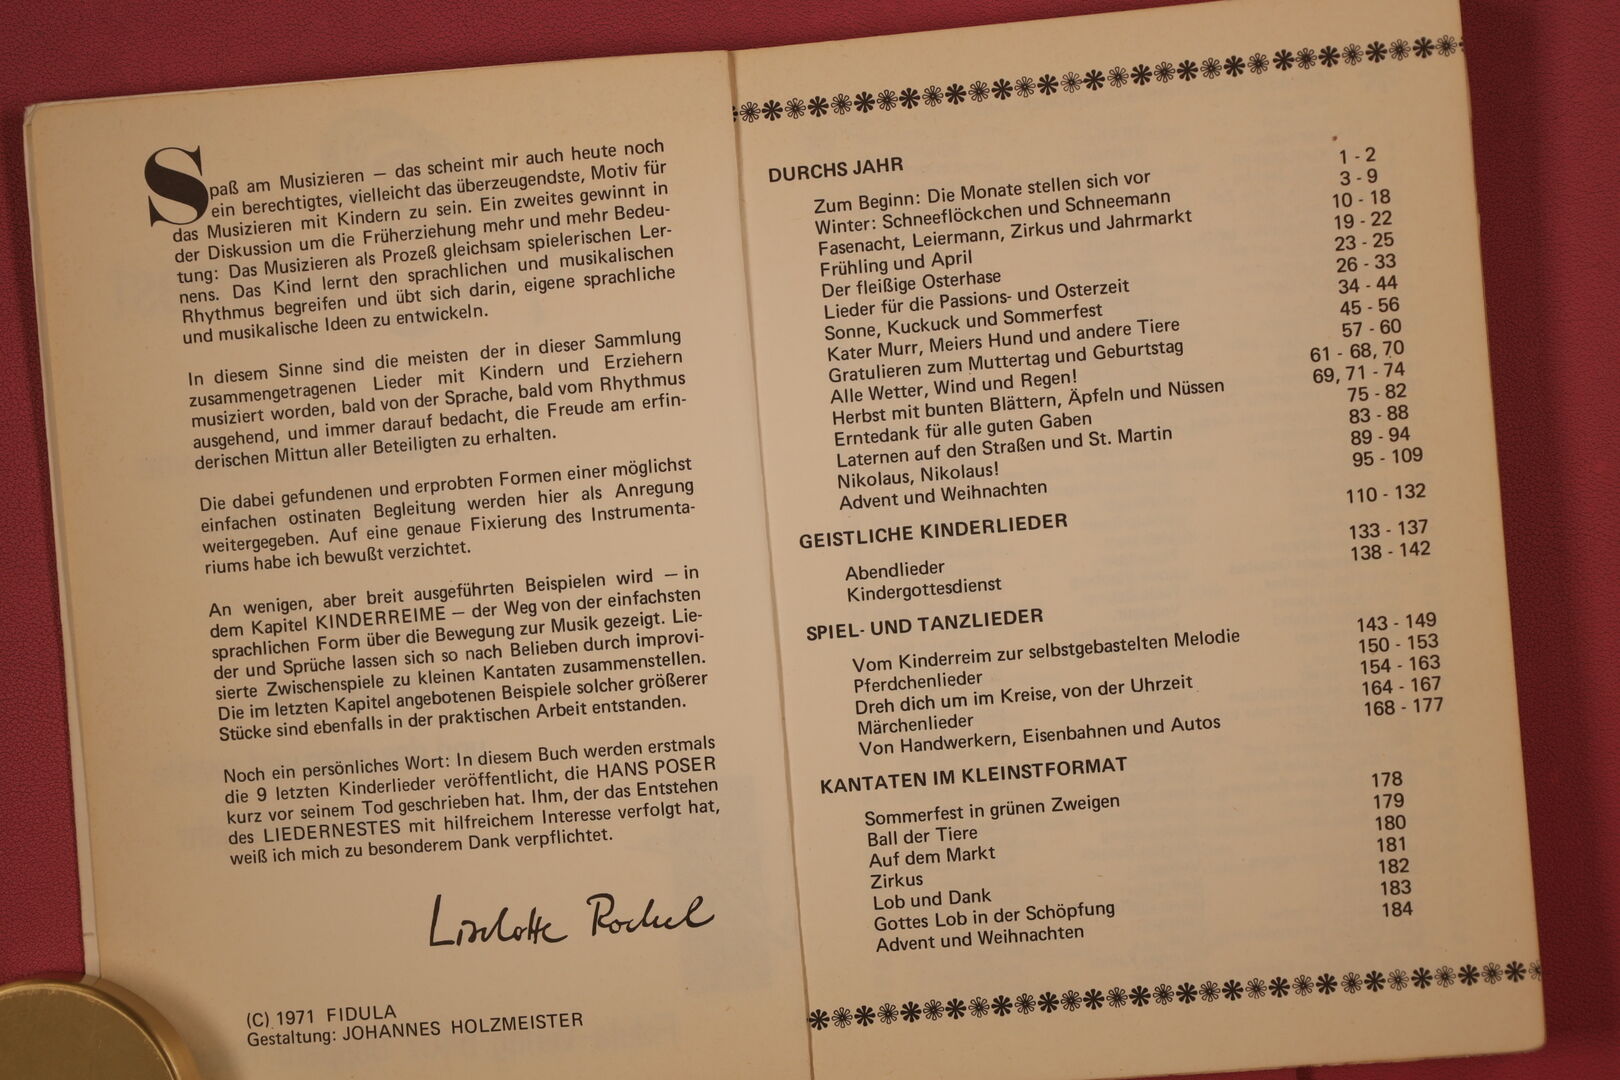 Spaß am Musizieren — das scheint mir auch heute noch
ein berechtigtes, vielleicht das überzeugendste, Motiv für
das Musizieren mit Kindern zu sein. Ein zweites gewinnt in
der Diskussion um die Früherziehung mehr und mehr Bedeu-
tung: Das Musizieren als Prozeß gleichsam spielerischen Ler-
nens. Das Kind lernt den sprachlichen und musikalischen
Rhythmus begreifen und übt sich darin, eigene sprachliche
und musikalische Ideen zu entwickeln.
In diesem Sinne sind die meisten der in dieser Sammlung
zusammengetragenen Lieder mit Kindern und Erziehern
musiziert worden, bald von der Sprache, bald vom Rhythmus
ausgehend, und immer darauf bedacht, die Freude am erfin-
derischen Mittun aller Beteiligten zu erhalten.
Die dabei gefundenen und erprobten Formen einer möglichst
einfachen ostinaten Begleitung werden hier als Anregung
weitergegeben. Auf eine genaue Fixierung des Instrumenta-
riums habe ich bewußt verzichtet.
An wenigen, aber breit ausgeführten Beispielen wird — in
dem Kapitel KINDERREIME — der Weg von der einfachsten
sprachlichen Form über die Bewegung zur Musik gezeigt. Lie-
der und Sprüche lassen sich so nach Belieben durch improvi-
sierte Zwischenspiele zu kleinen Kantaten zusammenstellen.
Die im letzten Kapitel angebotenen Beispiele solcher größerer
Stücke sind ebenfalls in der praktischen Arbeit entstanden.
Noch ein persönliches Wort: In diesem Buch werden erstmals
die 9 letzten Kinderlieder veröffentlicht, die HANS POSER
kurz vor seinem Tod geschrieben hat. Ihm, der das Entstehen
des LIEDERNESTES mit hilfreichem Interesse verfolgt hat,
weiß ich mich zu besonderem Dank verpflichtet.
Liselotte Rockel
(C) 1971 FIDULA
Gestaltung: JOHANNES HOLZMEISTER
DURCHS JAHR
Zum Beginn: Die Monate stellen sich vor 1 - 2
Winter: Schneeflöckchen und Schneemann 3 - 9
Fasenacht, Leiermann, Zirkus und Jahrmarkt 10 - 18
Frühling und April 19 - 22
Der fleißige Osterhase 23 - 25
Lieder für die Passions- und Osterzeit 26 - 33
Sonne, Kuckuck und Sommerfest 34 - 44
Kater Murr, Meiers Hund und andere Tiere 45 - 56
Gratulieren zum Muttertag und Geburtstag 57 - 60
Alle Wetter, Wind und Regen! 61 - 68, 70
Herbst mit bunten Blättern, Äpfeln und Nüssen 69, 71 - 74
Erntedank für alle guten Gaben 75 - 82
Laternen auf den Straßen und St. Martin 83 - 88
Nikolaus, Nikolaus! 89 - 94
Advent und Weihnachten 95 - 109
GEISTLICHE KINDERLIEDER 110 - 132
Abendlieder 133 - 137
Kindergottesdienst 138 - 142
SPIEL- UND TANZLIEDER
Vom Kinderreim zur selbstgebastelten Melodie 143 - 149
Pferdchenlieder 150 - 153
Dreh dich um im Kreise, von der Uhrzeit 154 - 163
Märchenlieder 164 - 167
Von Handwerkern, Eisenbahnen und Autos 168 - 177
KANTATEN IM KLEINSTFORMAT
Sommerfest in grünen Zweigen 178
Ball der Tiere 179
Auf dem Markt 180
Zirkus 181
Lob und Dank 182
Gottes Lob in der Schöpfung 183
Advent und Weihnachten 184